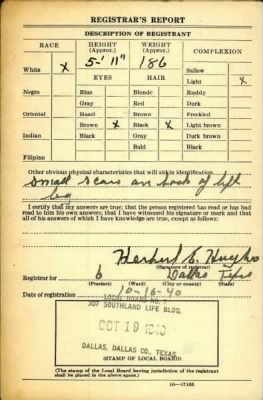 REGISTRAR'S REPORT
DESCRIPTION OF REGISTRANT
RACE HEIGHT (Approx.) WEIGHT (Approx.) COMPLEXION
5-11" 186
White X Sallow
EYES HAIR Light X
Negro Blue Blonde Ruddy
Gray Red Dark
Oriental Hazel Brown Freckled
Brown X Black X Light brown
Indian Black Gray Dark brown
Bald Black
Filipino
Other obvious physical characteristics that will aid in identification
small scars on back of left
leg
I certify that my answers are true; that the person registered has read or has had
read to him his own answers; that I have witnessed his signature or mark and that
all of his answers of which I have knowledge are true, except as follows:
Herbert E. Hughes
(Signature of registrar)
Registrar for 6 Dallas Texas
(Precinct) (Ward) (City or county) (State)
Date of registration 10-16-40
LOCAL BOARD NO.
307 SOUTHLAND LIFE BLDG.
OCT 19 1940
DALLAS, DALLAS CO., TEXAS
(STAMP OF LOCAL BOARD)
(The stamp of the Local Board having jurisdiction of the registrant
shall be placed in the above space.)
16-17105